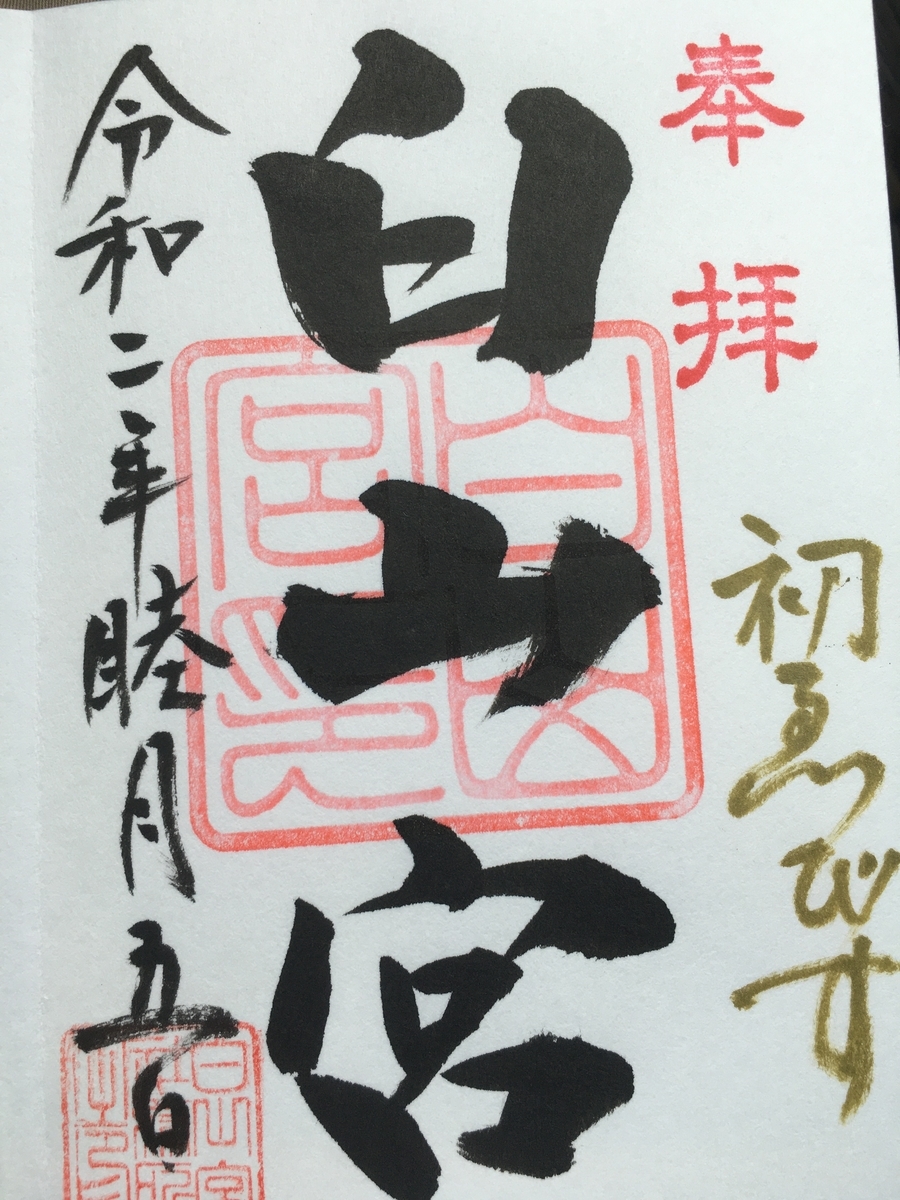 奉拝
初ゑびす
白山宮
白山宮印
令和二年睦月五日